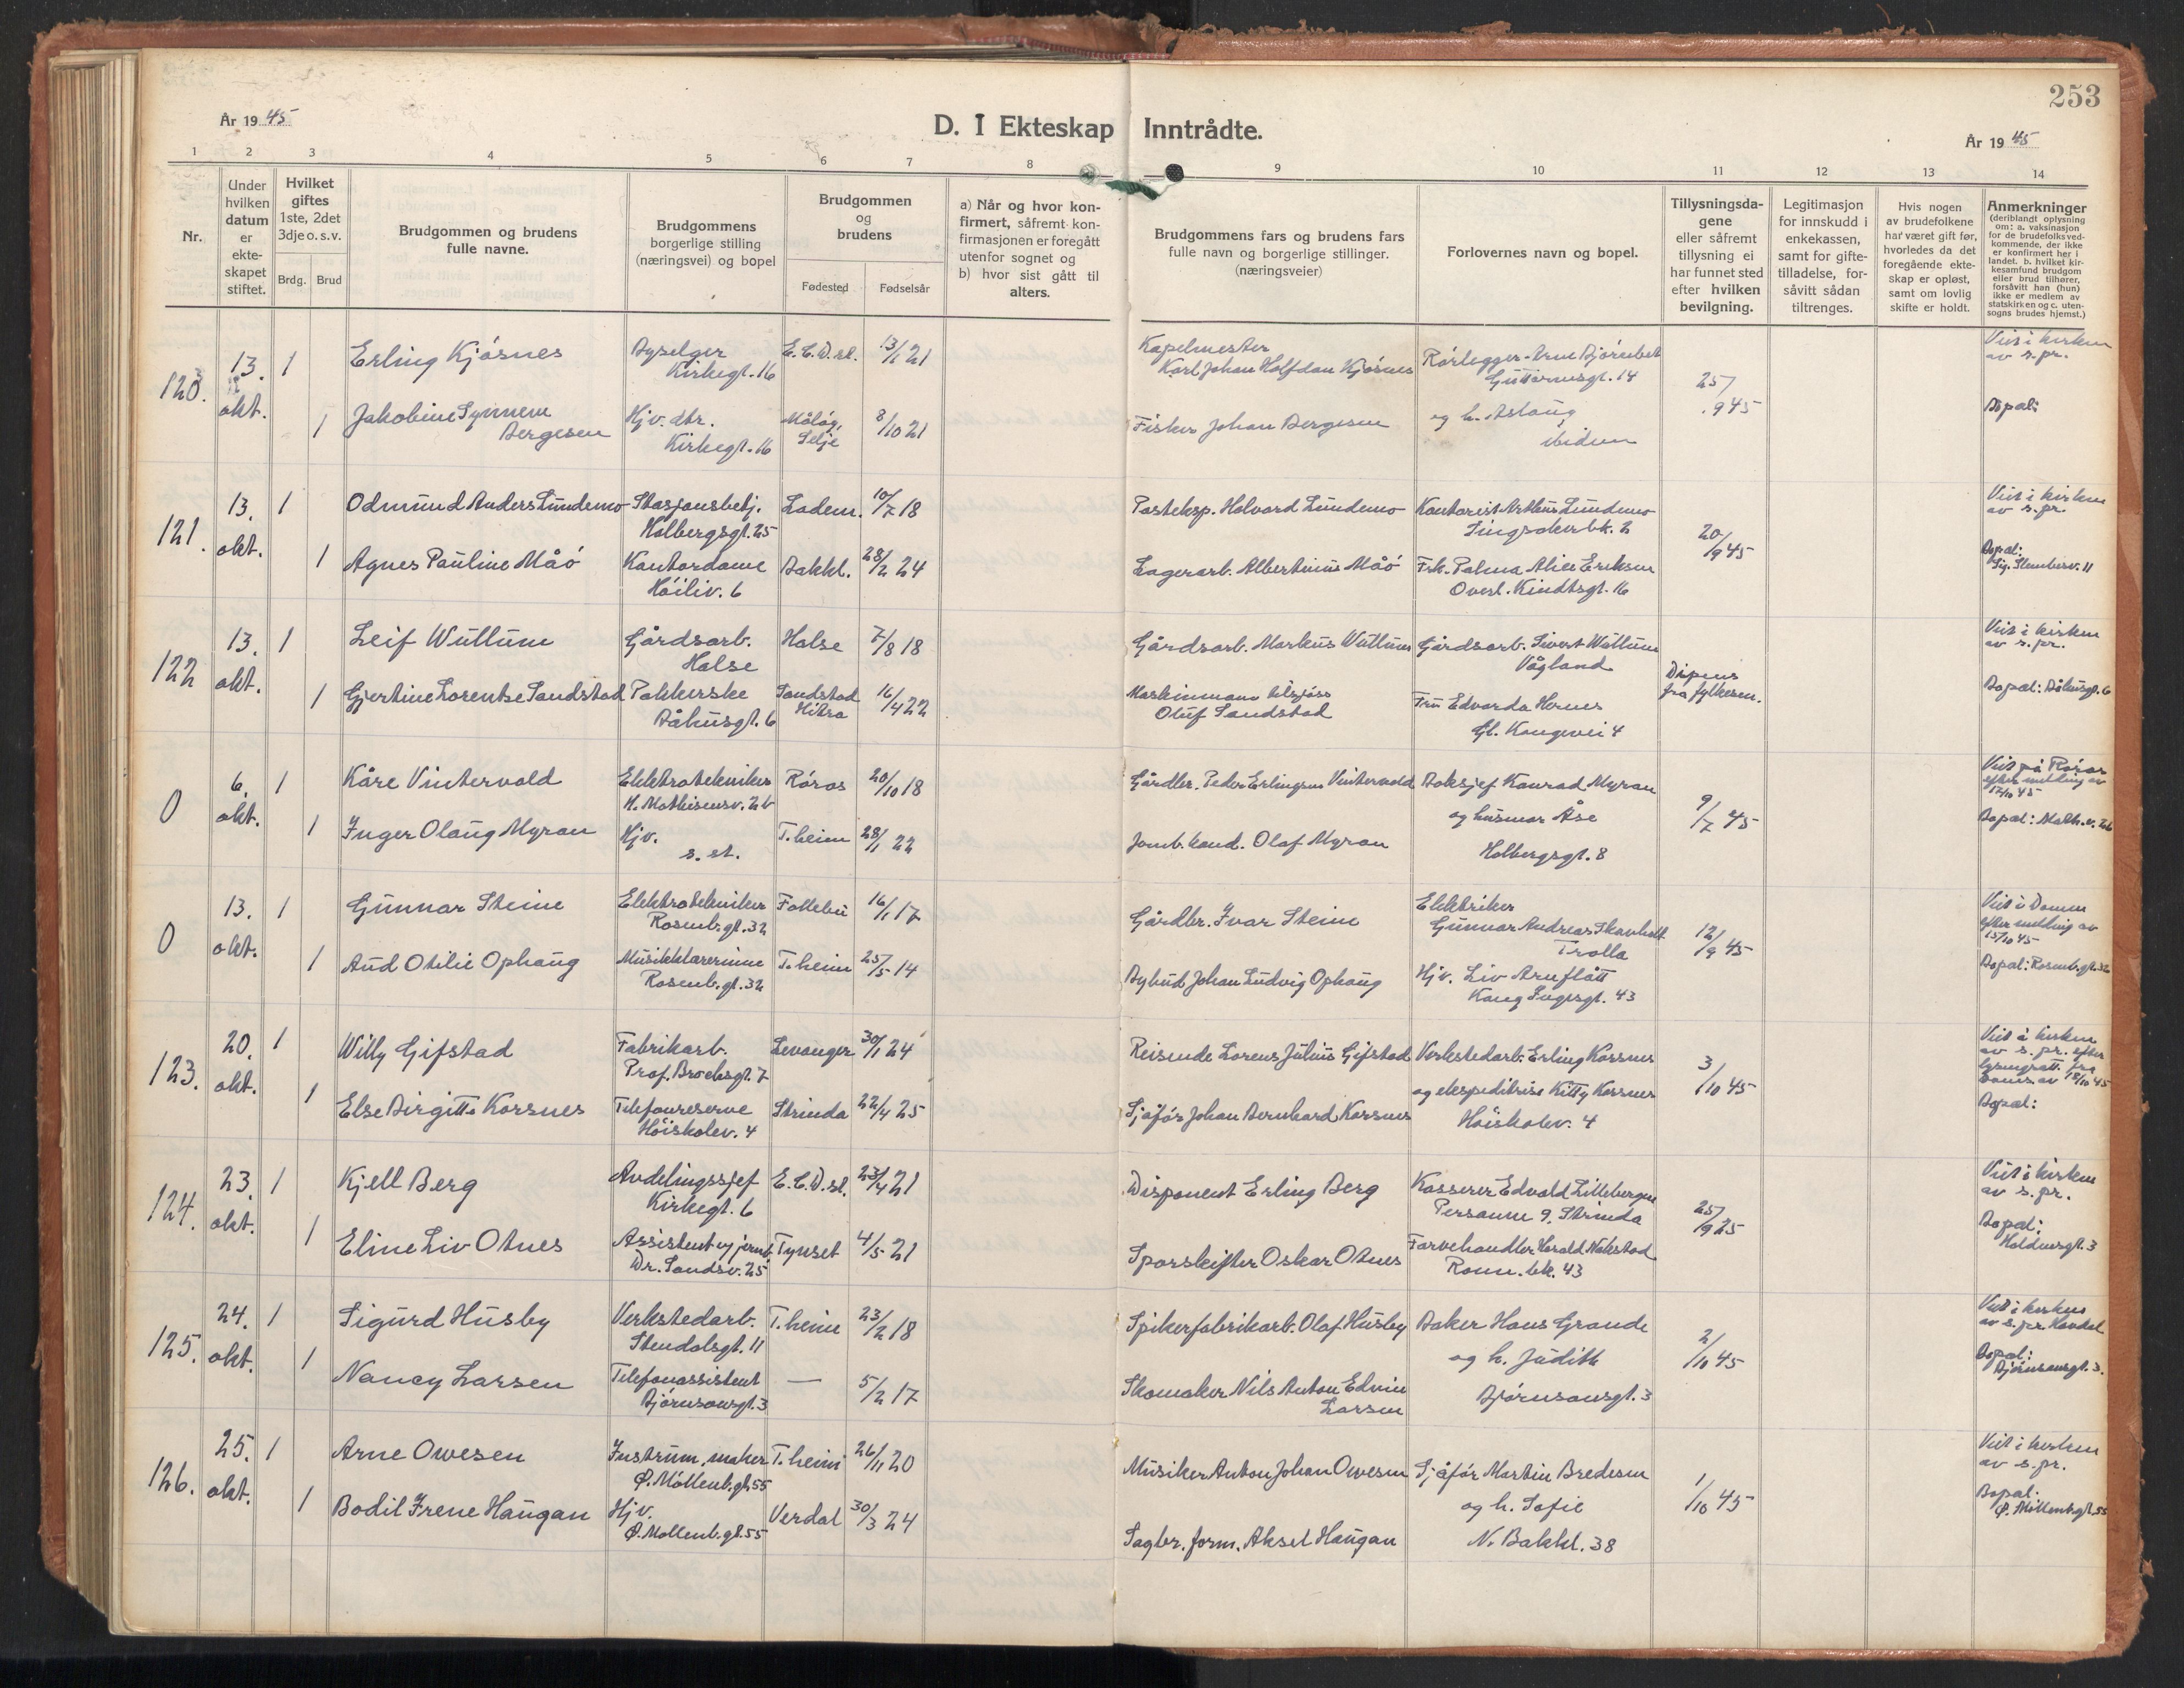 253
År 19 45
D. I Ekteskap Inntrådte.
År 19 45
1 2 3 4 5 6 7 8 9 10 11 12 13 14
Nr.
Under hvilken datum er ekte-skapet stiftet.
Hvilket giftes 1ste, 2det 3dje o. s. v.
Brdg. Brud
Brudgommen og brudens fulle navne.
Brudgommens borgerlige stilling (næringsvei) og bopel
Brudgommen og brudens
Fødested Fødselsår
a) Når og hvor kon-firmert, såfremt kon-firmasjonen er foregått utenfor sognet og b) hvor sist gått til alters.
Brudgommens fars og brudens fars fulle navn og borgerlige stillinger. (næringsveier)
Forlovernes navn og bopel.
Tillysningsda-gene eller såfremt tillysning ei har funnet sted efter hvilken bevilgning.
Legitimasjon for innskudd i enkekassen, samt for gifte-tilladelse, for-såvitt sådan tiltrenges.
Hvis nogen av brudefolkene har været gift før, hvorledes da det foregående ekte-skap er opløst, samt om lovlig skifte er holdt.
Anmerkninger (deriblandt oplysning om: a. vaksinasjon for de brudefolks ved-kommende, der ikke er konfirmert her i landet. b. hvilket kir-kesamfund brudgom eller brud tilhører, forsåvitt han (hun) ikke er medlem av statskirken og c. uten-sogns brudes hjemst.)
120. 13. okt. 1 Erling Kjøsnes
Kirkegt. 16 13/1 21
Kapelmester
Karl Johan Halfdan Kjøsnes
Rørlegger Arne
Guttormsgt. 14
25/9 45
Viet i kirken
av s. pr.
1 Jakobine Synnøve
Bergesen
Hjv. dtr.
Kirkegt. 16
Måløy,
Selje
8/10 21
Fisker Johan Bergesen
og h. Aslaug
ibidem
Bopæl:
121. 13. okt. 1 Odmund Anders Lundemo
Stasjonsbetj.
Holbergsgt. 25
Ladem. 10/7 18
Posteksp. Halvard Lundemo
Kontorist Arthur Lundemo
Singsakerbk. 2
20/9 45
Viet i kirken
av s. pr.
1 Agnes Pauline Måø
Kontordame
Høiliv. 6
Bakkl. 28/2 24
Lagerarb. Albertinius Måø
Frk. Palma Alice Eriksen
Overl. Kindtsgt. 16
Bopæl:
122 13. okt. 1 Leif Wullum
Gårdsarb.
Halse
Halse 7/8 18
Gårdsarb. Markus Wullum
Gårdsarb. Sivert Wullum
Vågland
Dispens
fra fylkesm.
Viet i kirken
av s. pr.
1 Gjertine Lorentse Sandstad
Pakkerske
Båhusgt. 6
Sandstad
Hitra
16/4 22
Maskinmann
Oluf Sandstad
Fru Edvarda Hernes
Gl. Kongevei 4
Bopæl: Båhusgt. 6
0 6. okt. 1 Kåre Vintervold
Elektrotekniker
H. Mathisensv. 2b
Røros 20/10 18
Gårdbr. Peder Erlingsen Vintervold
Boksjef Konrad Myran
og husmor Åse
Holbergsgt. 8
9/7 45
Viet på Røros
efter melding av
12/10 45
1 Inger Olaug Myran
Hjv.
s. st.
T.heim 28/1 22
Jernb. kond. Olaf Myran
Bopæl: Math. v. 2b
0 13. okt. 1 Gunnar Steine
Elektrotekniker
Rosenb. gt. 32
Follebu 16/1 17
Gårdbr. Ivar Steine
Elektriker
Gunnar Andreas Skavhalt
Trolla
12/9 45
Viet i Domen
efter melding av
15/10 45
1 Aud Otilie Ophaug
Musikklærerinne
Rosenb. gt. 32
T.heim 25/5 14
Bybud Johan Ludvig Ophaug
Hjv. Liv Arnflått
Kong Ingesgt. 43
Bopæl: Rosenb. gt. 32
123. 20. okt. 1 Willy Gifstad
Fabrikarb.
Prof. Brochsgt. 7
Levanger 30/1 24
Reisende Lorens Julius Gifstad
Verkstedarb. Erling Korsnes
og ekspeditrise Kitty Korsnes
Høiskolev. 4
3/10 45
Viet i kirken
av s. pr. efter
18/10 45
1 Else Birgitte Korsnes
Telefonreserve
Høiskolev. 4
Strinda 22/4 25
Sjåfør Johan Bernhard Korsnes
Bopæl:
124. 23. okt. 1 Kjell Berg
Avdelingssjef
Kirkegt. 6
23/4 21
Disponent Erling Berg
Kasserer Edvald Lillebergen
Persaune 9, Strinda
25/9 25
Viet i kirken
av s. pr.
1 Eline Liv Otnes
Assistent
Dr. Sandsv. 25
Tynset 4/5 21
Sporskifter Oskar Otnes
Farvehandler Harald
Ronn. bk. 43
Bopæl:
125. 24. okt. 1 Sigurd Husby
Verkstedarb.
Stendalsgt. 11
T.heim 23/2 18
Spikerfabrikarb. Olaf Husby
Baker Hans Grande
og h. Judith
Bjørnsonsgt. 3
2/10 45
Viet i kirken
1 Nancy Larsen
Telefonassistent
Bjørnsonsgt. 3
— 5/2 17
Skomaker Nils Anton Edvin
Larsen
Bopæl:
Bjørnsonsgt. 3.
126. 25. okt. 1 Arne Owesen
Instrum. maker
Ø. Møllenb. gt. 55
T.heim 26/11 20
Musiker Anton Johan Owesen
Sjåfør Martin Bredesen
og h. Sofie
N. Bakkl. 38
1/10 45
Viet i kirken
av s. pr.
1 Bodil Irene Haugan
Hjv.
Ø. Møllenb. gt. 55
Verdal 30/3 24
Sagbr. form. Aksel Haugan
Bopæl:
Ø. Møllenb. gt. 55